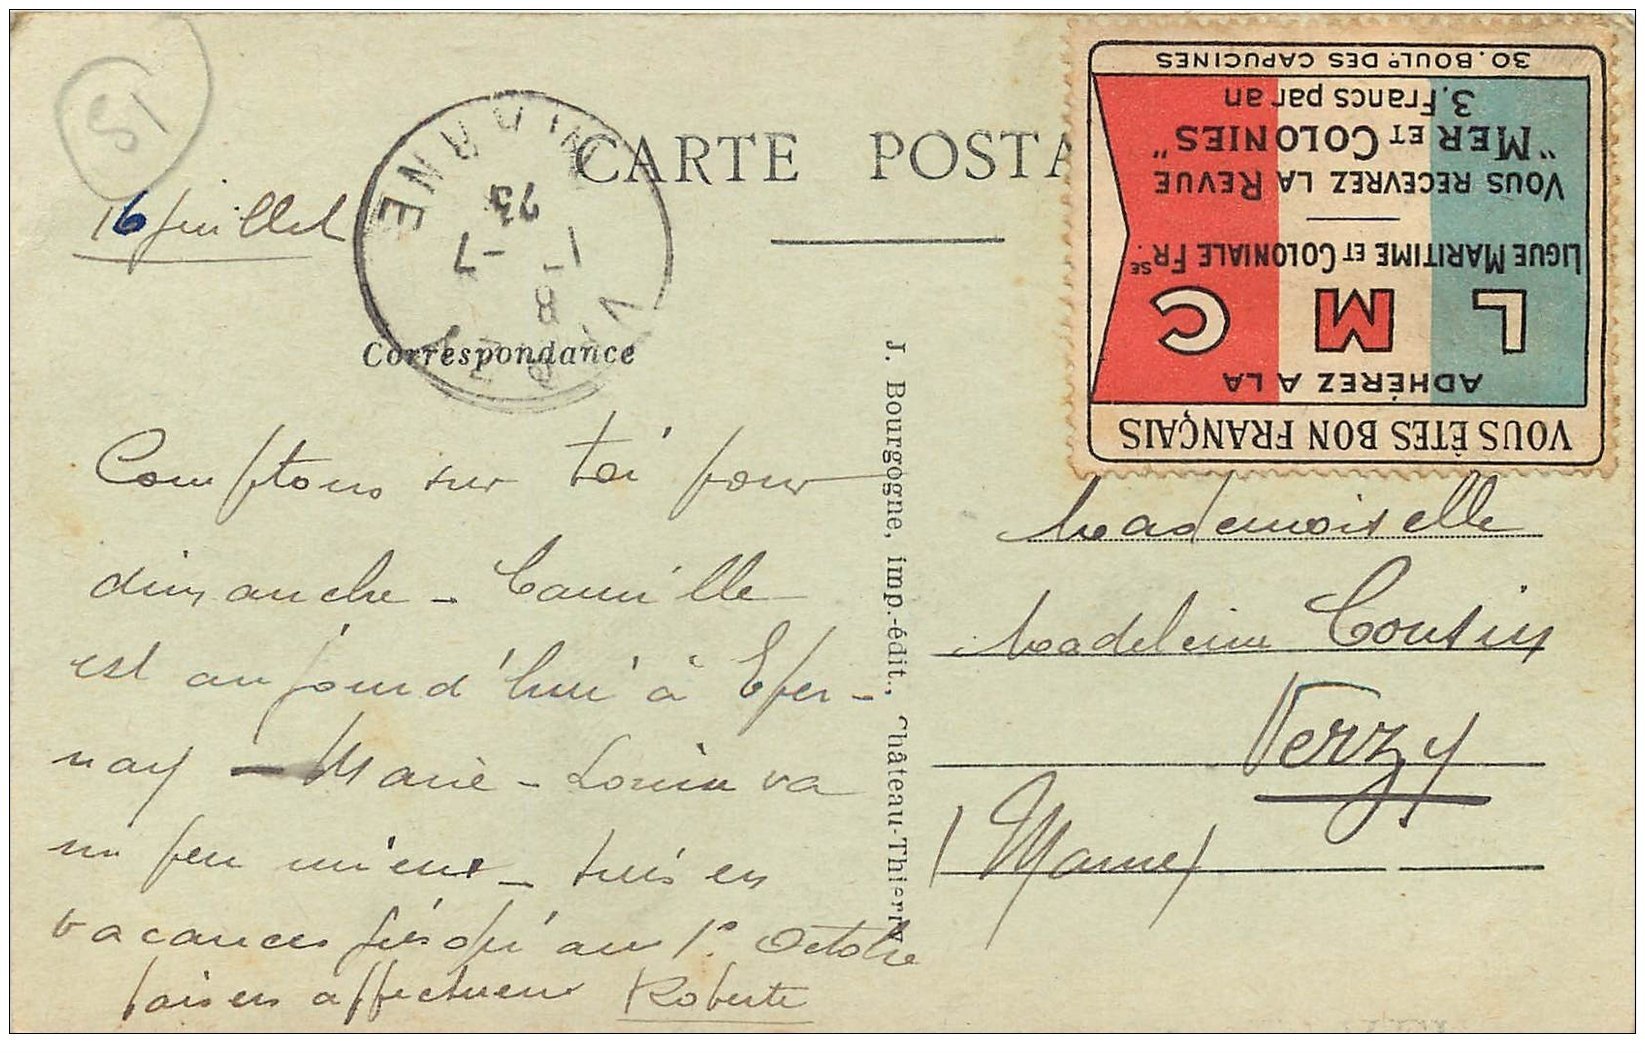 51
CARTE POSTA
16 juillet
MARNE
18
1 -7
23
Correspondance
Comptons sur toi pour
dimanche - Camille
est aujourd'hui à Eper-
nay - Marie-Louise va
un peu mieux - suis en
vacances jusqu'au 1er Octobre
baisers affectueux Roberte
J. Bourgogne, imp.-édit., Château-Thierry
VOUS ÊTES BON FRANÇAIS
ADHÉREZ A LA
L M C
LIGUE MARITIME ET COLONIALE FRSE
VOUS RECEVREZ LA REVUE
"MER ET COLONIES"
3.Francs par an
30. BOULD DES CAPUCINES
Mademoiselle
Madeleine Cousin
Verzy
(Marne)